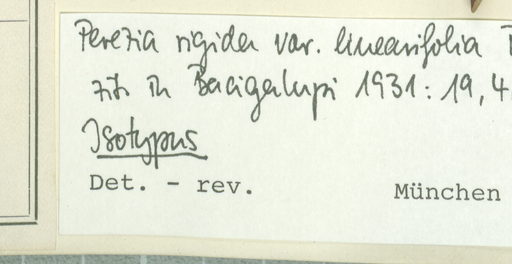 Perezia rigida var. linearifolia
zit. in Bacigalupi 1931: 19, 4
Isotypus
Det. - rev.
München